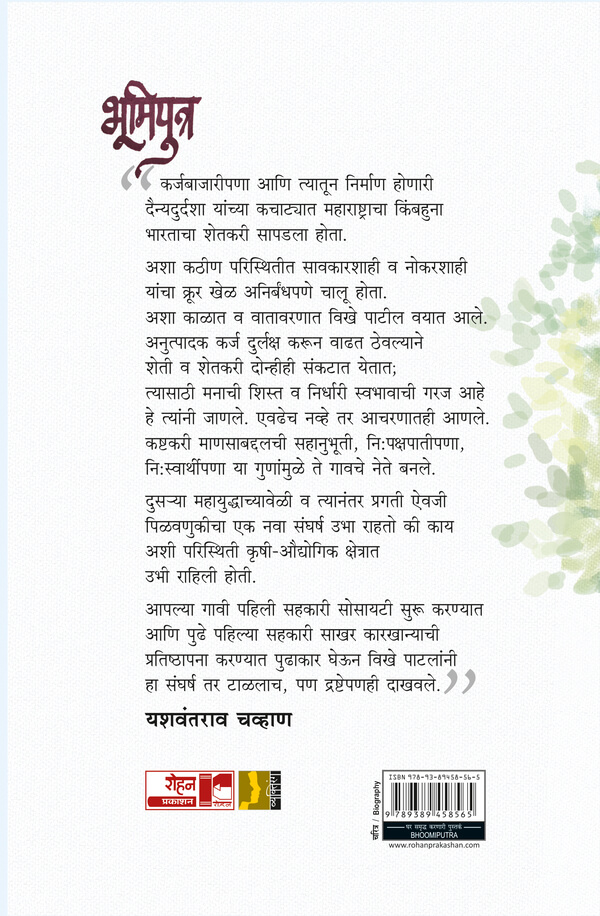 भूमिपुत्र
“ कर्जबाजारीपणा आणि त्यातून निर्माण होणारी
दैन्यदुर्दशा यांच्या कचाट्यात महाराष्ट्राचा किंबहुना
भारताचा शेतकरी सापडला होता.
अशा कठीण परिस्थितीत सावकारशाही व नोकरशाही
यांचा क्रूर खेळ अनिर्बंधपणे चालू होता.
अशा काळात व वातावरणात विखे पाटील वयात आले.
अनुत्पादक कर्ज दुर्लक्ष करून वाढत ठेवल्याने
शेती व शेतकरी दोन्हीही संकटात येतात;
त्यासाठी मनाची शिस्त व निर्धारी स्वभावाची गरज आहे
हे त्यांनी जाणले. एवढेच नव्हे तर आचरणातही आणले.
कष्टकरी माणसाबद्दलची सहानुभूती, नि:पक्षपातीपणा,
नि:स्वार्थीपणा या गुणांमुळे ते गावचे नेते बनले.
दुसऱ्या महायुद्धाच्यावेळी व त्यानंतर प्रगती ऐवजी
पिळवणुकीचा एक नवा संघर्ष उभा राहतो की काय
अशी परिस्थिती कृषी-औद्योगिक क्षेत्रात
उभी राहिली होती.
आपल्या गावी पहिली सहकारी सोसायटी सुरू करण्यात
आणि पुढे पहिल्या सहकारी साखर कारखान्याची
प्रतिष्ठापना करण्यात पुढाकार घेऊन विखे पाटलांनी
हा संघर्ष तर टाळलाच, पण द्रष्टेपणही दाखवले. ”
यशवंतराव चव्हाण
रोहन
प्रकाशन
रोहन
व्यक्तिरंग
चरित्र / Biography
ISBN 978-93-89458-56-5
9 789389 458565
घर समृद्ध करणारी पुस्तके
BHOOMIPUTRA
www.rohanprakashan.com